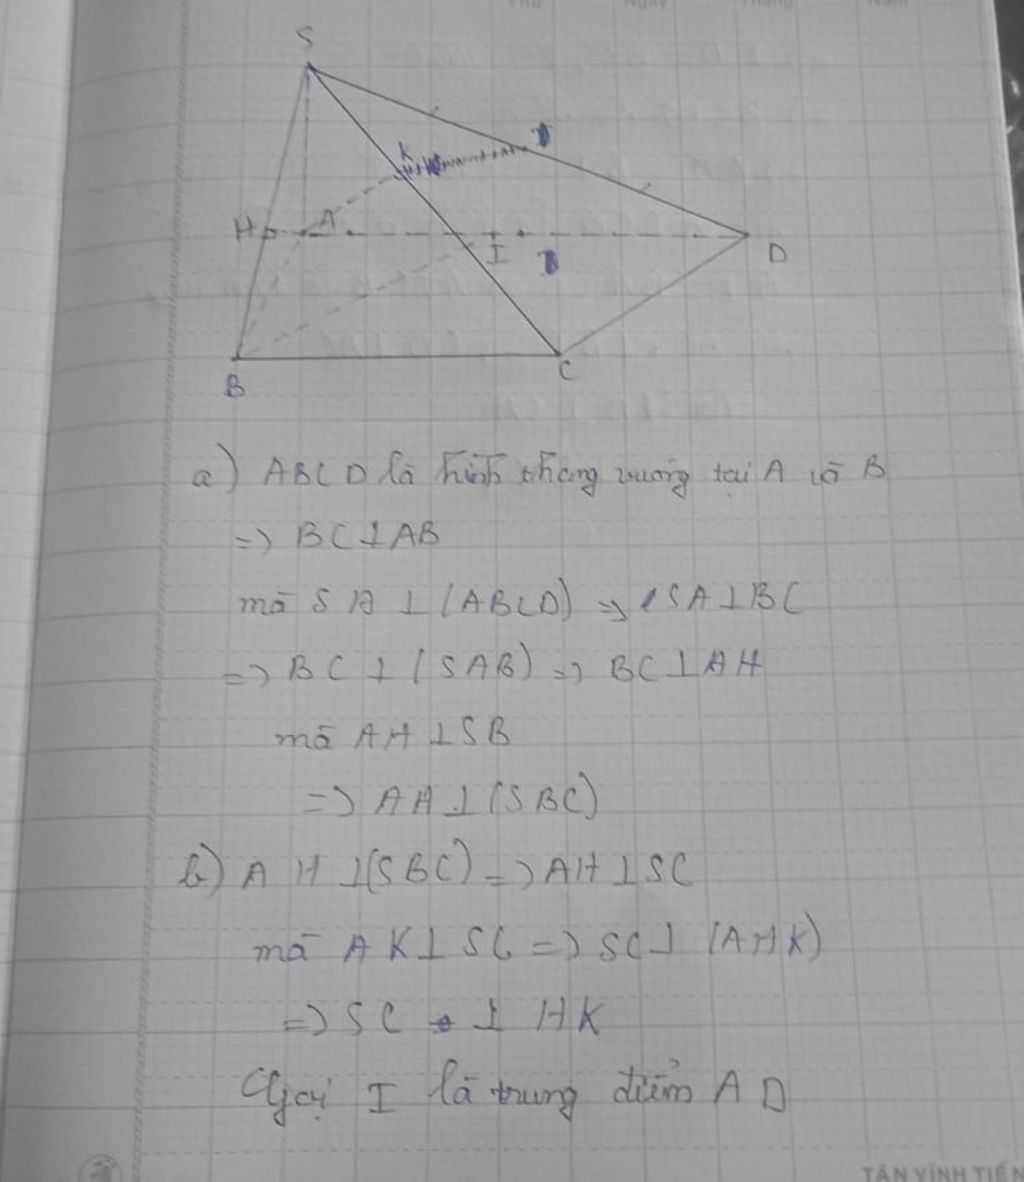 S
K
H
A
I
D
B
C
a) ABCD là hình thang vuông tại A và B
=> BC⊥AB
mà SA ⊥ (ABCD) => SA⊥BC
=> BC ⊥ (SAB) => BC⊥AH
mà AH ⊥SB
=> AH⊥(SBC)
b) AH ⊥(SBC) => AH⊥SC
mà AK⊥SC => SC⊥ (AHK)
=> SC ⊥ HK
Gọi I là trung điểm AD
TÂN VĨNH TIẾN